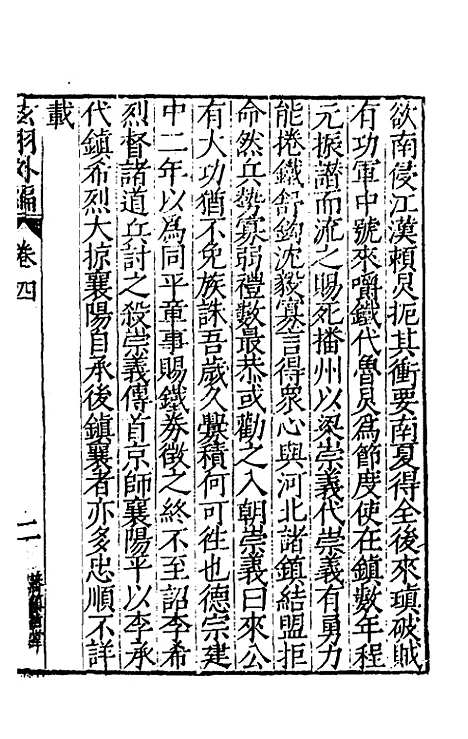 欲南侵江漢賴炅扼其衝要南夏得全後來瑱破賊
有功軍中號來嚼鐵代魯炅為節度使在鎮數年程
元振譖而流之賜死播州以梁崇義代崇義有勇力
能捲鐵舒鉤沈毅寡言得眾心與河北諸鎮結盟拒
命然兵勢寡弱禮數最恭或勸之入朝崇義曰來公
有大功猶不免族誅吾歲久釁積何可徃也德宗建
中二年以爲同平章事賜鐵券徵之終不至詔李希
烈督諸道兵討之殺崇義傳首京師襄陽平以李承
代鎮希烈大掠襄陽自承後鎮襄者亦多忠順不詳
載
玄羽外編
卷四
二